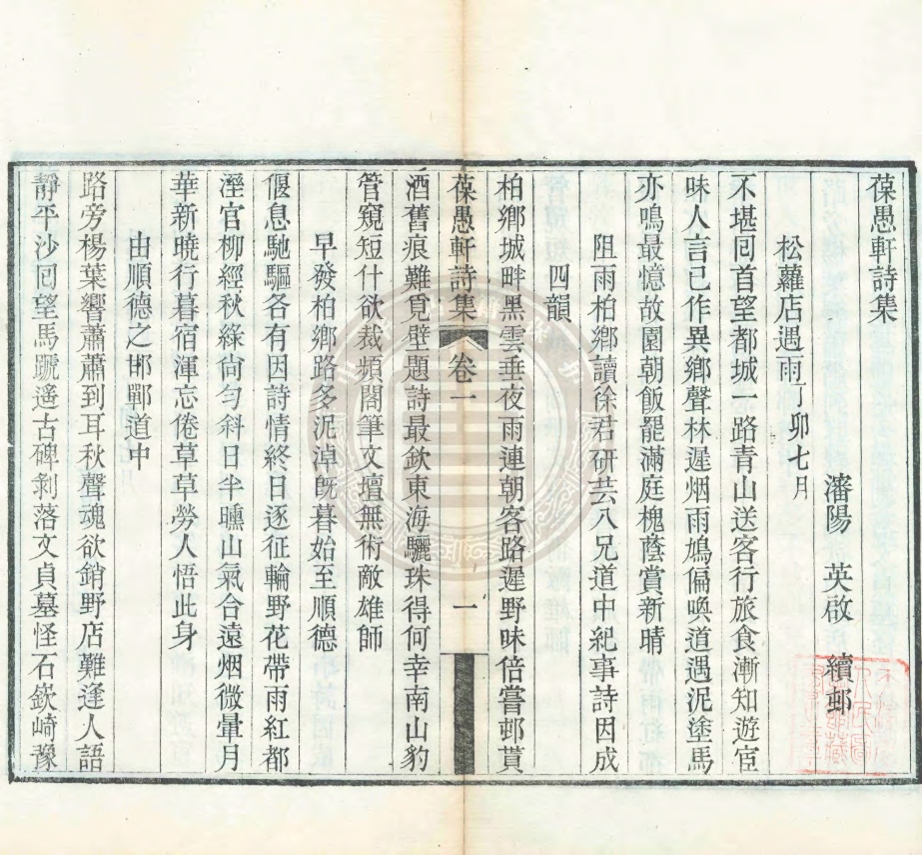 葆愚軒詩集
瀋陽 英啟 續邨
松蘿店遇雨丁卯七月
不堪囘首望都城一路青山送客行旅食漸知遊宦
味人言已作異鄉聲林遲烟雨鳩偏喚道遇泥塗馬
亦鳴最憶故園朝飯罷滿庭槐蔭賞新晴
阻雨柏鄉讀徐君研芸八兄道中紀事詩因成
四韻
柏鄉城畔黑雲垂夜雨連朝客路遲野味倍嘗邨貰
葆愚軒詩集 卷一 一
酒舊痕難覓壁題詩最欽東海驪珠得何幸南山豹
管窺短什欲裁頻閣筆文壇無術敵雄師
早發柏鄉路多泥淖旣暮始至順德
偃息馳驅各有因詩情終日逐征輪野花帶雨紅都
溼官柳經秋綠尙勻斜日半曛山氣合遠烟微暈月
華新曉行暮宿渾忘倦草草勞人悟此身
由順德之邯鄲道中
路旁楊葉響蕭蕭到耳秋聲魂欲銷野店難逢人語
靜平沙囘望馬蹏遙古碑剝落文貞墓怪石嶔崎豫